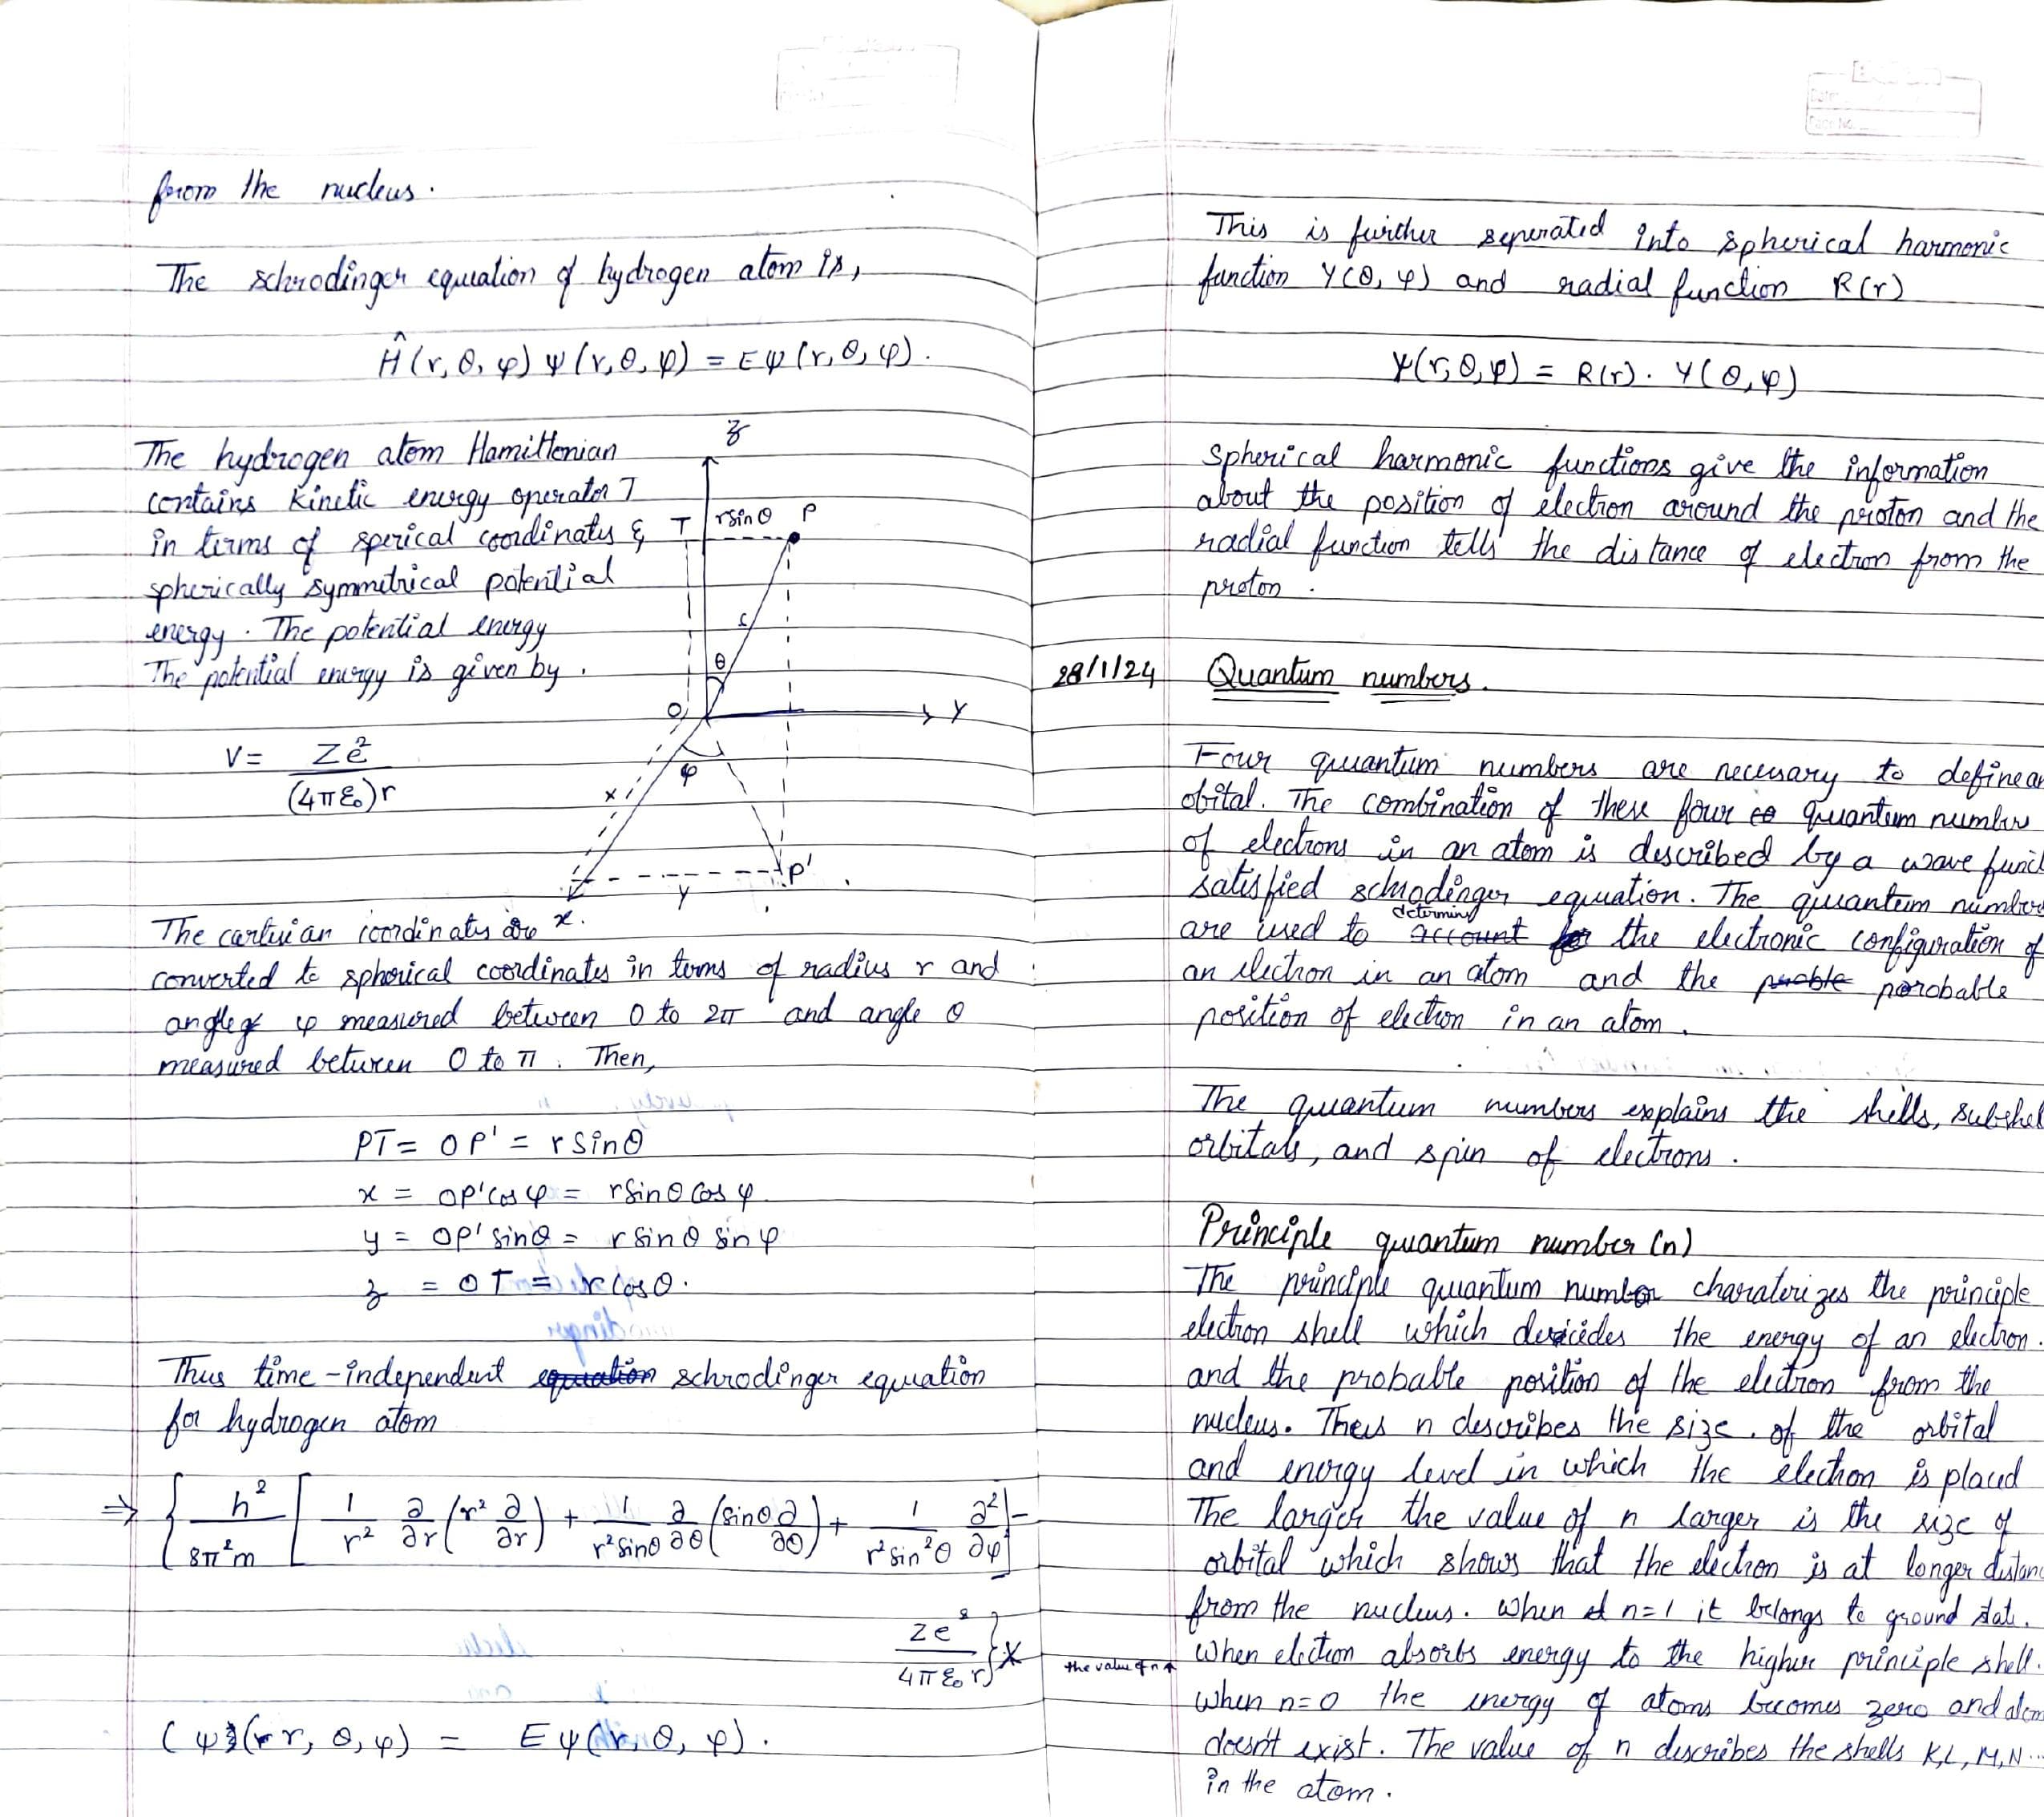 from the nucleus.
The schrodinger equation of hydrogen atom is,
Ĥ(r, θ, φ) ψ(r, θ, φ) = Eψ(r, θ, φ).
The hydrogen atom Hamiltonian
contains kinetic energy operator T
in terms of sperical coordinates &
spherically symmetrical potential
energy. The potential energy
The potential energy is given by.
V = Ze²
(4πε₀)r
z
T rsinθ P
r
θ
O Y
φ
x
y P'
x.
The cartesian coordinates are
converted to spherical coordinates in terms of radius r and
angle φ measured between 0 to 2π and angle θ
measured between 0 to π. Then,
PT = OP' = rsinθ
x = OP'cosφ = rsinθcosφ
y = OP'sinθ = rsinθ sinφ
z = OT = rcosθ.
Thus time-independent equation schrodinger equation
for hydrogen atom
⇒ { h²/8π²m [ 1/r² ∂/∂r (r² ∂/∂r) + 1/r²sinθ ∂/∂θ (sinθ ∂/∂θ) + 1/r²sin²θ ∂²/∂φ ] -
Ze²/4πε₀r } x
(ψ (r, θ, φ) = Eψ(r, θ, φ).
This is further seperated into spherical harmonic
function Y(θ, φ) and radial function R(r)
ψ(r, θ, φ) = R(r). Y(θ, φ)
Spherical harmonic functions give the information
about the position of electron around the proton and the
radial function tells the distance of electron from the
proton.
28/1/24 Quantum numbers.
Four quantum numbers are necessary to define an
obital. The combination of these four quantum number
of electrons in an atom is described by a wave funct
satisfied schrodinger equation. The quantum number
determine
are used to account for the electronic configuration of
an electron in an atom and the proble probable
position of electron in an atom.
The quantum numbers explains the shells, subshel
orbitals, and spin of electrons.
Principle quantum number (n)
The principle quantum number charaterizes the principle
electron shell which decides the energy of an electron.
and the probable position of the electron from the
nucleus. Thus n describes the size. of the orbital
and energy level in which the electron is placed
The larger the value of n larger is the size of
orbital which shows that the electron is at longer distanc
from the nucleus. When n=1 it belongs to ground state.
the value of n ↑ When electron absorbs energy to the higher principle shell.
When n=0 the energy of atoms becomes zero and atom
doesn't exist. The value of n describes the shells K,L,M,N...
in the atom.